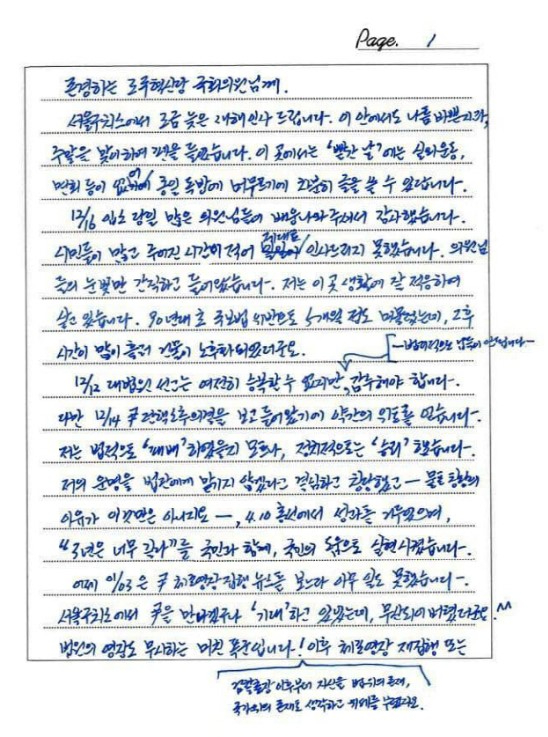 Page. 1
존경하는 조국혁신당 국회의원님께.
서울구치소에서 조금 늦은 새해인사 드립니다. 이 안에서도 나름 바쁜지라,
주말을 맞이하여 펜을 들었습니다. 이 곳에서는 '빨간 날'에는 실외운동,
면회 등이 없어 종일 독방에 머무르기에 차분히 글을 쓸 수 있답니다.
12/16 입소 당일 많은 의원님들이 배웅나와 주셔서 감사했습니다.
시민들이 많고 주어진 시간이 적어 제대로 인사드리지 못했습니다. 의원님
들의 눈빛만 간직하고 들어왔습니다. 저는 이 곳 생활에 잘 적응하여
살고 있습니다. 90년대 초 국보법 위반으로 5개월 정도 머물렀는데, 그 후
시간이 많이 흘러 건물이 노후화되었더군요.
—법리적으로 납득이 안됩니다—
12/12 대법원 선고는 여전히 승복할 수 없지만, 감수해야 합니다.
다만 12/14 尹 탄핵소추의결을 보고 들어왔기에 약간의 위로를 얻습니다.
저는 법적으로 '패배'하였을지 모르나, 정치적으로는 '승리'했습니다.
저의 운명을 법관에게 맡기지 않겠다고 결심하고 창당했고 — 물론 창당의
이유가 이것만은 아니지요 —, 4.10 총선에서 성과를 거두었으며,
"3년은 너무 길다"를 국민과 함께, 국민의 힘으로 실현시켰습니다.
어제 1/03은 尹 체포영장 집행 뉴스를 보느라 아무 일도 못했습니다.
서울구치소에서 尹을 만나겠구나 '기대'하고 있었는데, 무산되어 버렸더군요. ^^
법원의 영장도 무시하는 미친 폭군입니다! 이후 체포영장 재집행 또는
검찰총장 이후부터 자신을 법 위의 존재,
국가 위의 존재로 생각하고 위세를 부렸지요.